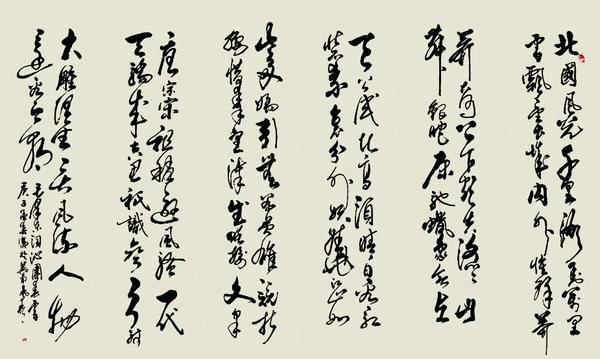 北國風光千里冰封萬里
雪飄望長城內外惟餘莽
莽大河上下頓失滔滔山
舞銀蛇原馳蠟象欲與
天公試比高須晴日看紅
裝素裹分外妖嬈江山如
此多嬌引無數英雄競折
腰惜秦皇漢武略輸文采
唐宗宋祖稍遜風騷一代
天驕成吉思汗祇識彎弓射
大雕俱往矣數風流人物
還看今朝
毛澤東詞沁園春雪
庚子